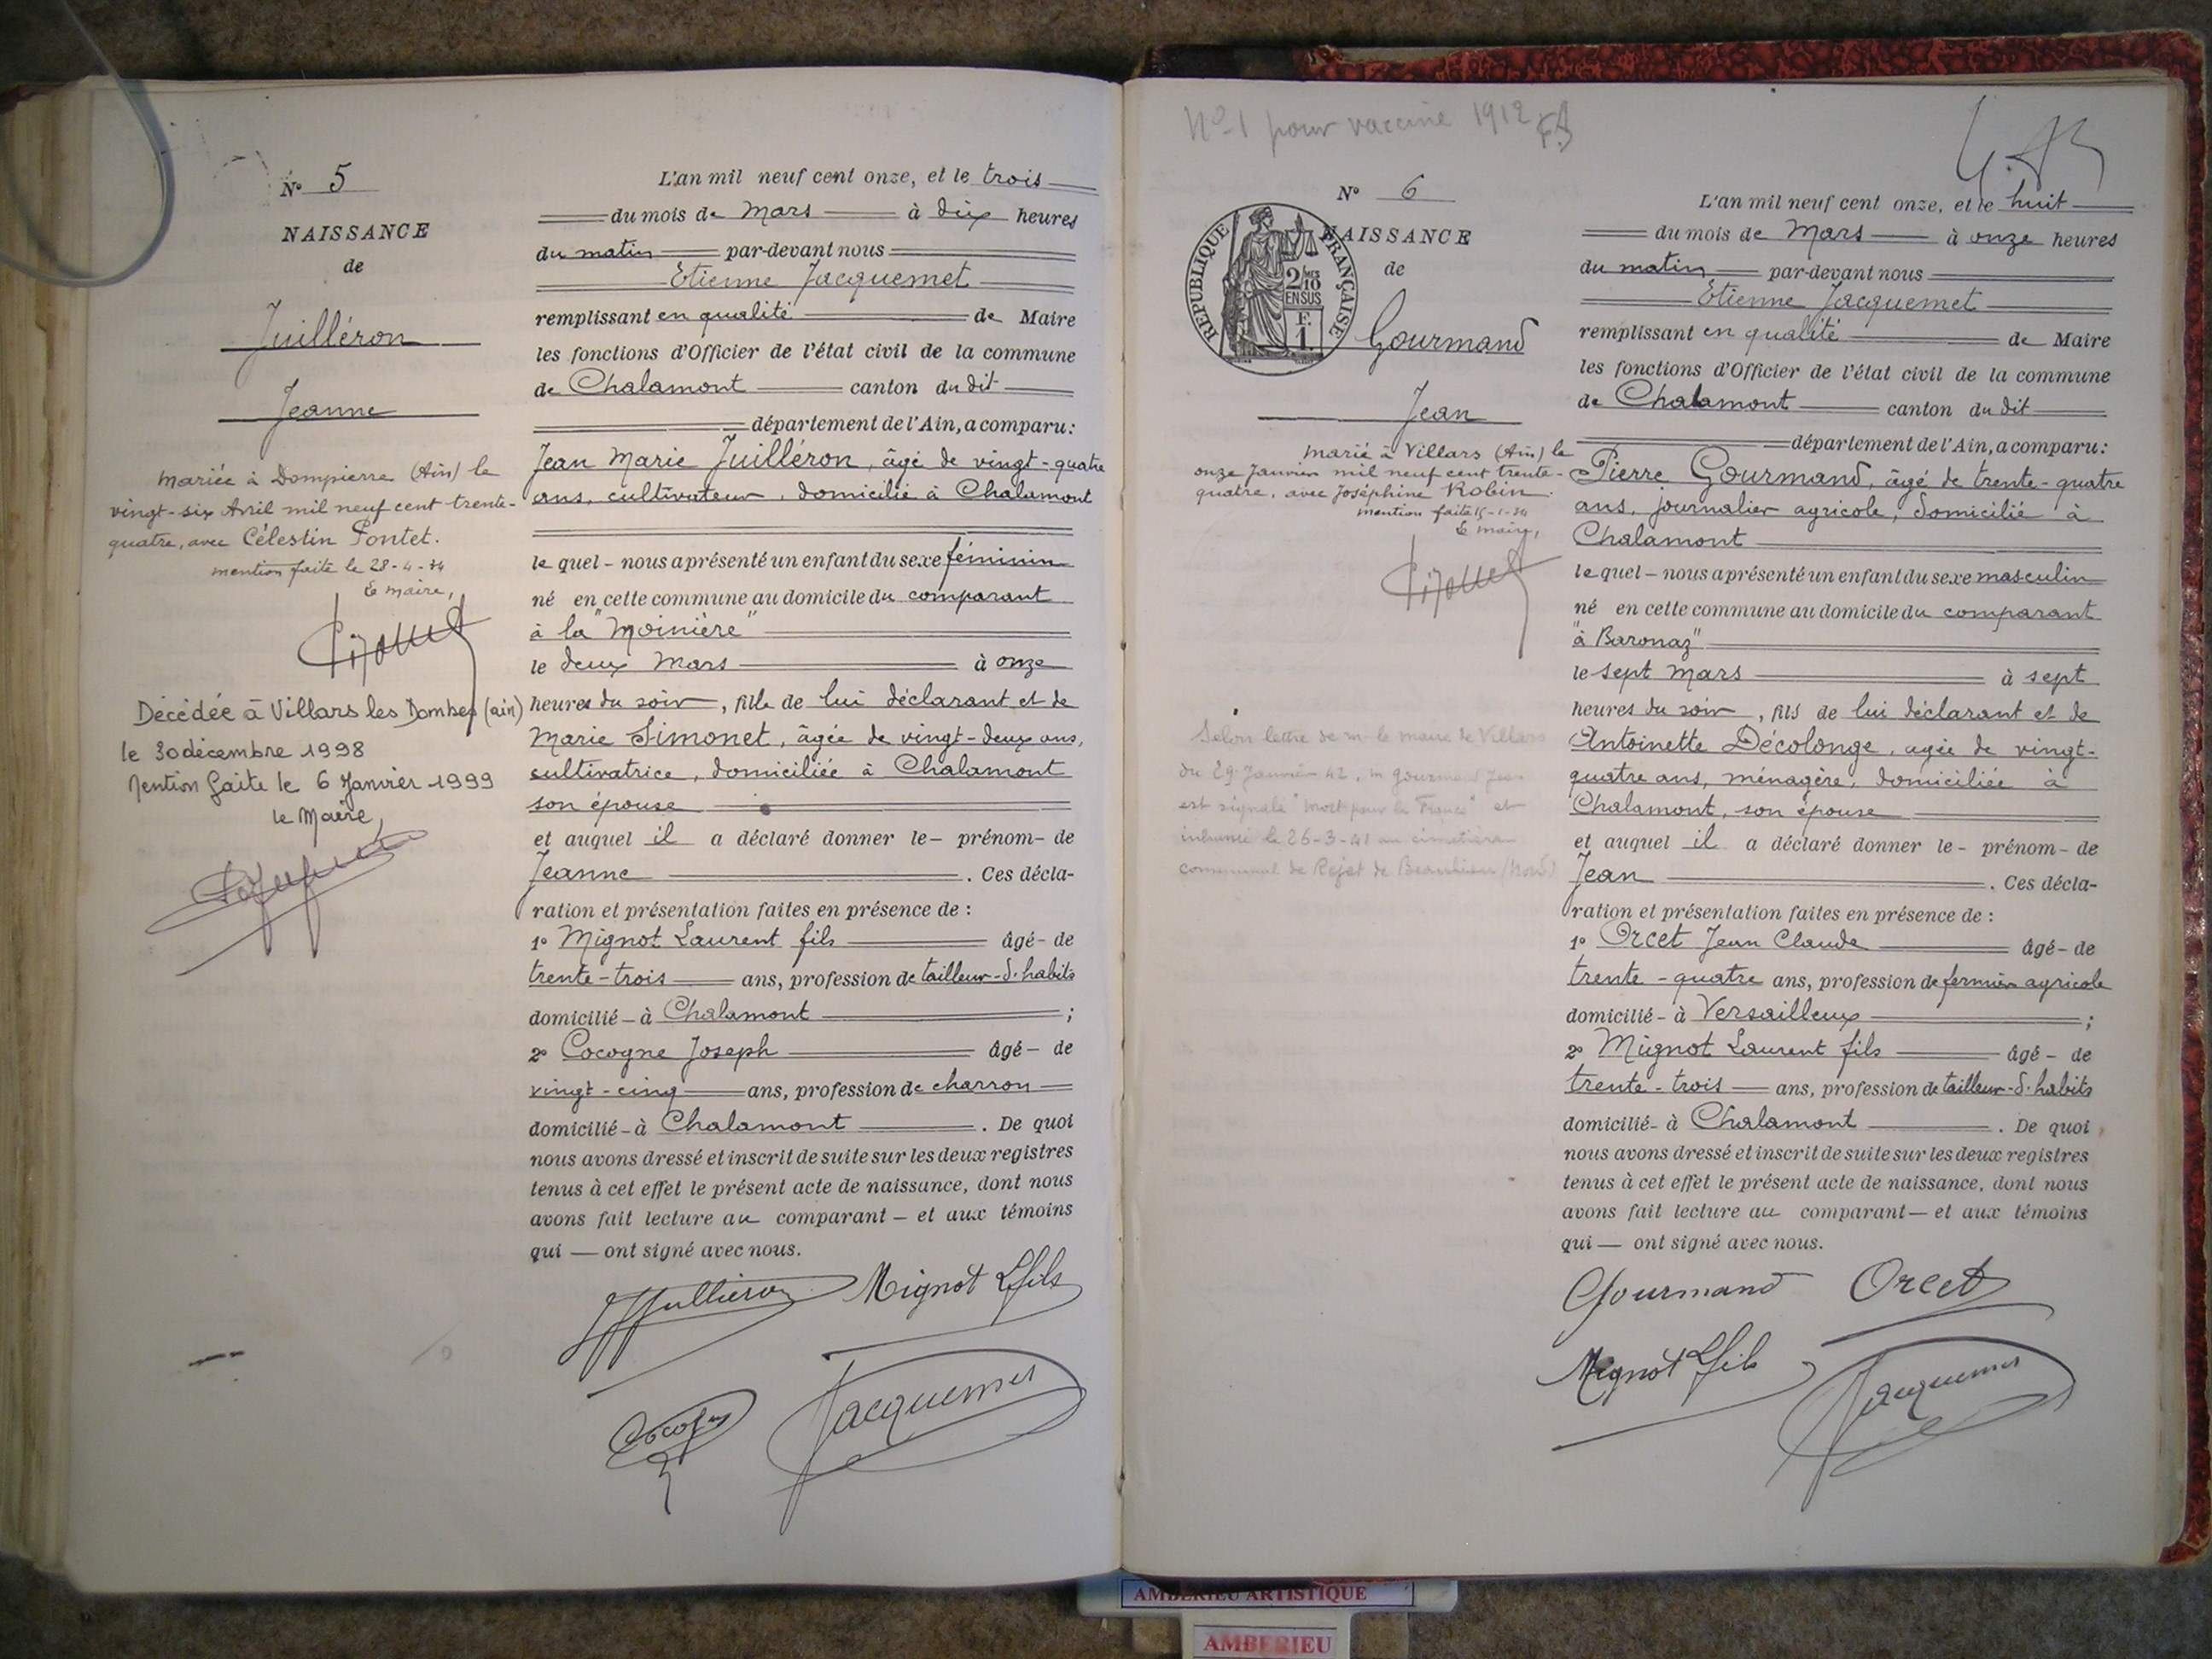 Nº 5
NAISSANCE
de
Juilléron
Jeanne
mariée à Dompierre (Ain) le
vingt-six Avril mil neuf cent trente-
quatre, avec Célestin Pontet.
mention faite le 28-4-34
Le maire,
Décédée à Villars les Dombes (ain)
le 30 décembre 1998
Mention faite le 6 Janvier 1999
le Maire,
L'an mil neuf cent onze, et le trois
du mois de Mars à dix heures
du matin par-devant nous
Etienne Jacquemet
remplissant en qualité de Maire
les fonctions d'Officier de l'état civil de la commune
de Chalamont canton du dit
département de l'Ain, a comparu:
Jean Marie Juilléron, âgé de vingt-quatre
ans, cultivateur, domicilié à Chalamont
le quel - nous a présenté un enfant du sexe féminin
né en cette commune au domicile du comparant
à la "Moinière"
le deux Mars à onze
heures du soir, fille de lui déclarant et de
Marie Simonet, âgée de vingt-deux ans,
cultivatrice, domiciliée à Chalamont
son épouse
et auquel il a déclaré donner le- prénom- de
Jeanne . Ces décla-
ration et présentation faites en présence de :
1º Mignot Laurent fils âgé- de
trente-trois ans, profession de tailleur-d'habits
domicilié-à Chalamont ;
2º Cocogne Joseph âgé- de
vingt-cinq ans, profession de charron
domicilié-à Chalamont . De quoi
nous avons dressé et inscrit de suite sur les deux registres
tenus à cet effet le présent acte de naissance, dont nous
avons fait lecture au comparant - et aux témoins
qui — ont signé avec nous.
JJuilléron Mignot L fils
Jacquemet
Nº 1 pour vaccine 1912
Nº 6
NAISSANCE
de
REPUBLIQUE FRANÇAISE
2/10
EN SUS
F.
1.
Gourmand
Jean
marié à Villars (Ain) le
onze Janvier mil neuf cent trente-
quatre, avec Joséphine Robin.
mention faite 15-1-34
Le maire,
Selon lettre de m. le maire de Villars
du 29 Janvier 42, m gourmand Jean
est signalé "mort pour la France" et
inhumé le 26-3-41 au cimetière
communal de Rejet de Beaulieu (Nord)
L'an mil neuf cent onze, et le huit
du mois de Mars à onze heures
du matin par-devant nous
Etienne Jacquemet
remplissant en qualité de Maire
les fonctions d'Officier de l'état civil de la commune
de Chalamont canton du dit
département de l'Ain, a comparu:
Pierre Gourmand, âgé de trente-quatre
ans, journalier agricole, domicilié à
Chalamont
le quel - nous a présenté un enfant du sexe masculin
né en cette commune au domicile du comparant
"à Baronaz"
le sept Mars à sept
heures du soir, fils de lui déclarant et de
Antoinette Décolonge, agée de vingt-
quatre ans, ménagère, domiciliée à
Chalamont, son épouse
et auquel il a déclaré donner le- prénom- de
Jean . Ces décla-
ration et présentation faites en présence de :
1º Orcet Jean Claude âgé- de
trente-quatre ans, profession de fermier agricole
domicilié- à Versailleux ;
2º Mignot Laurent fils âgé- de
trente-trois ans, profession de tailleur-d'habits
domicilié- à Chalamont . De quoi
nous avons dressé et inscrit de suite sur les deux registres
tenus à cet effet le présent acte de naissance, dont nous
avons fait lecture au comparant — et aux témoins
qui — ont signé avec nous.
Gourmand Orcet
Mignot L fils Jacquemet
AMBERIEU ARTISTIQUE
AMBERIEU